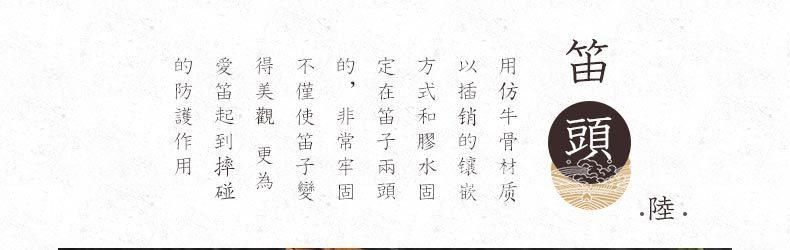 笛頭
.陸.
用仿牛骨材质
以插销的镶嵌
方式和膠水固
定在笛子兩頭
的，非常牢固
不僅使笛子變
得美觀 更為
愛笛起到摔碰
的防護作用